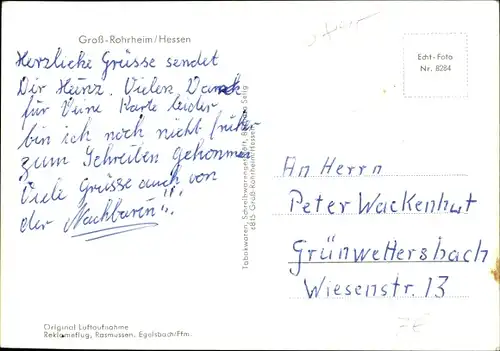 Groß-Rohrheim/Hessen
Herzliche Grüsse sendet
Dir Heinz. Vielen Dank
für Deine Karte leider
bin ich noch nicht früher
zum Schreiben gekommen
Viele Grüsse auch von
der Nachbarin!!!
Original Luftaufnahme
Reklameflug, Rasmussen, Egelsbach/Ffm.
Tabakwaren, Schreibwaren
6845 Groß-Rohrheim/Hessen
Echt-Foto
Nr. 8284
An Herrn
Peter Wackenhut
Grünwettersbach
Wiesenstr. 13
7€